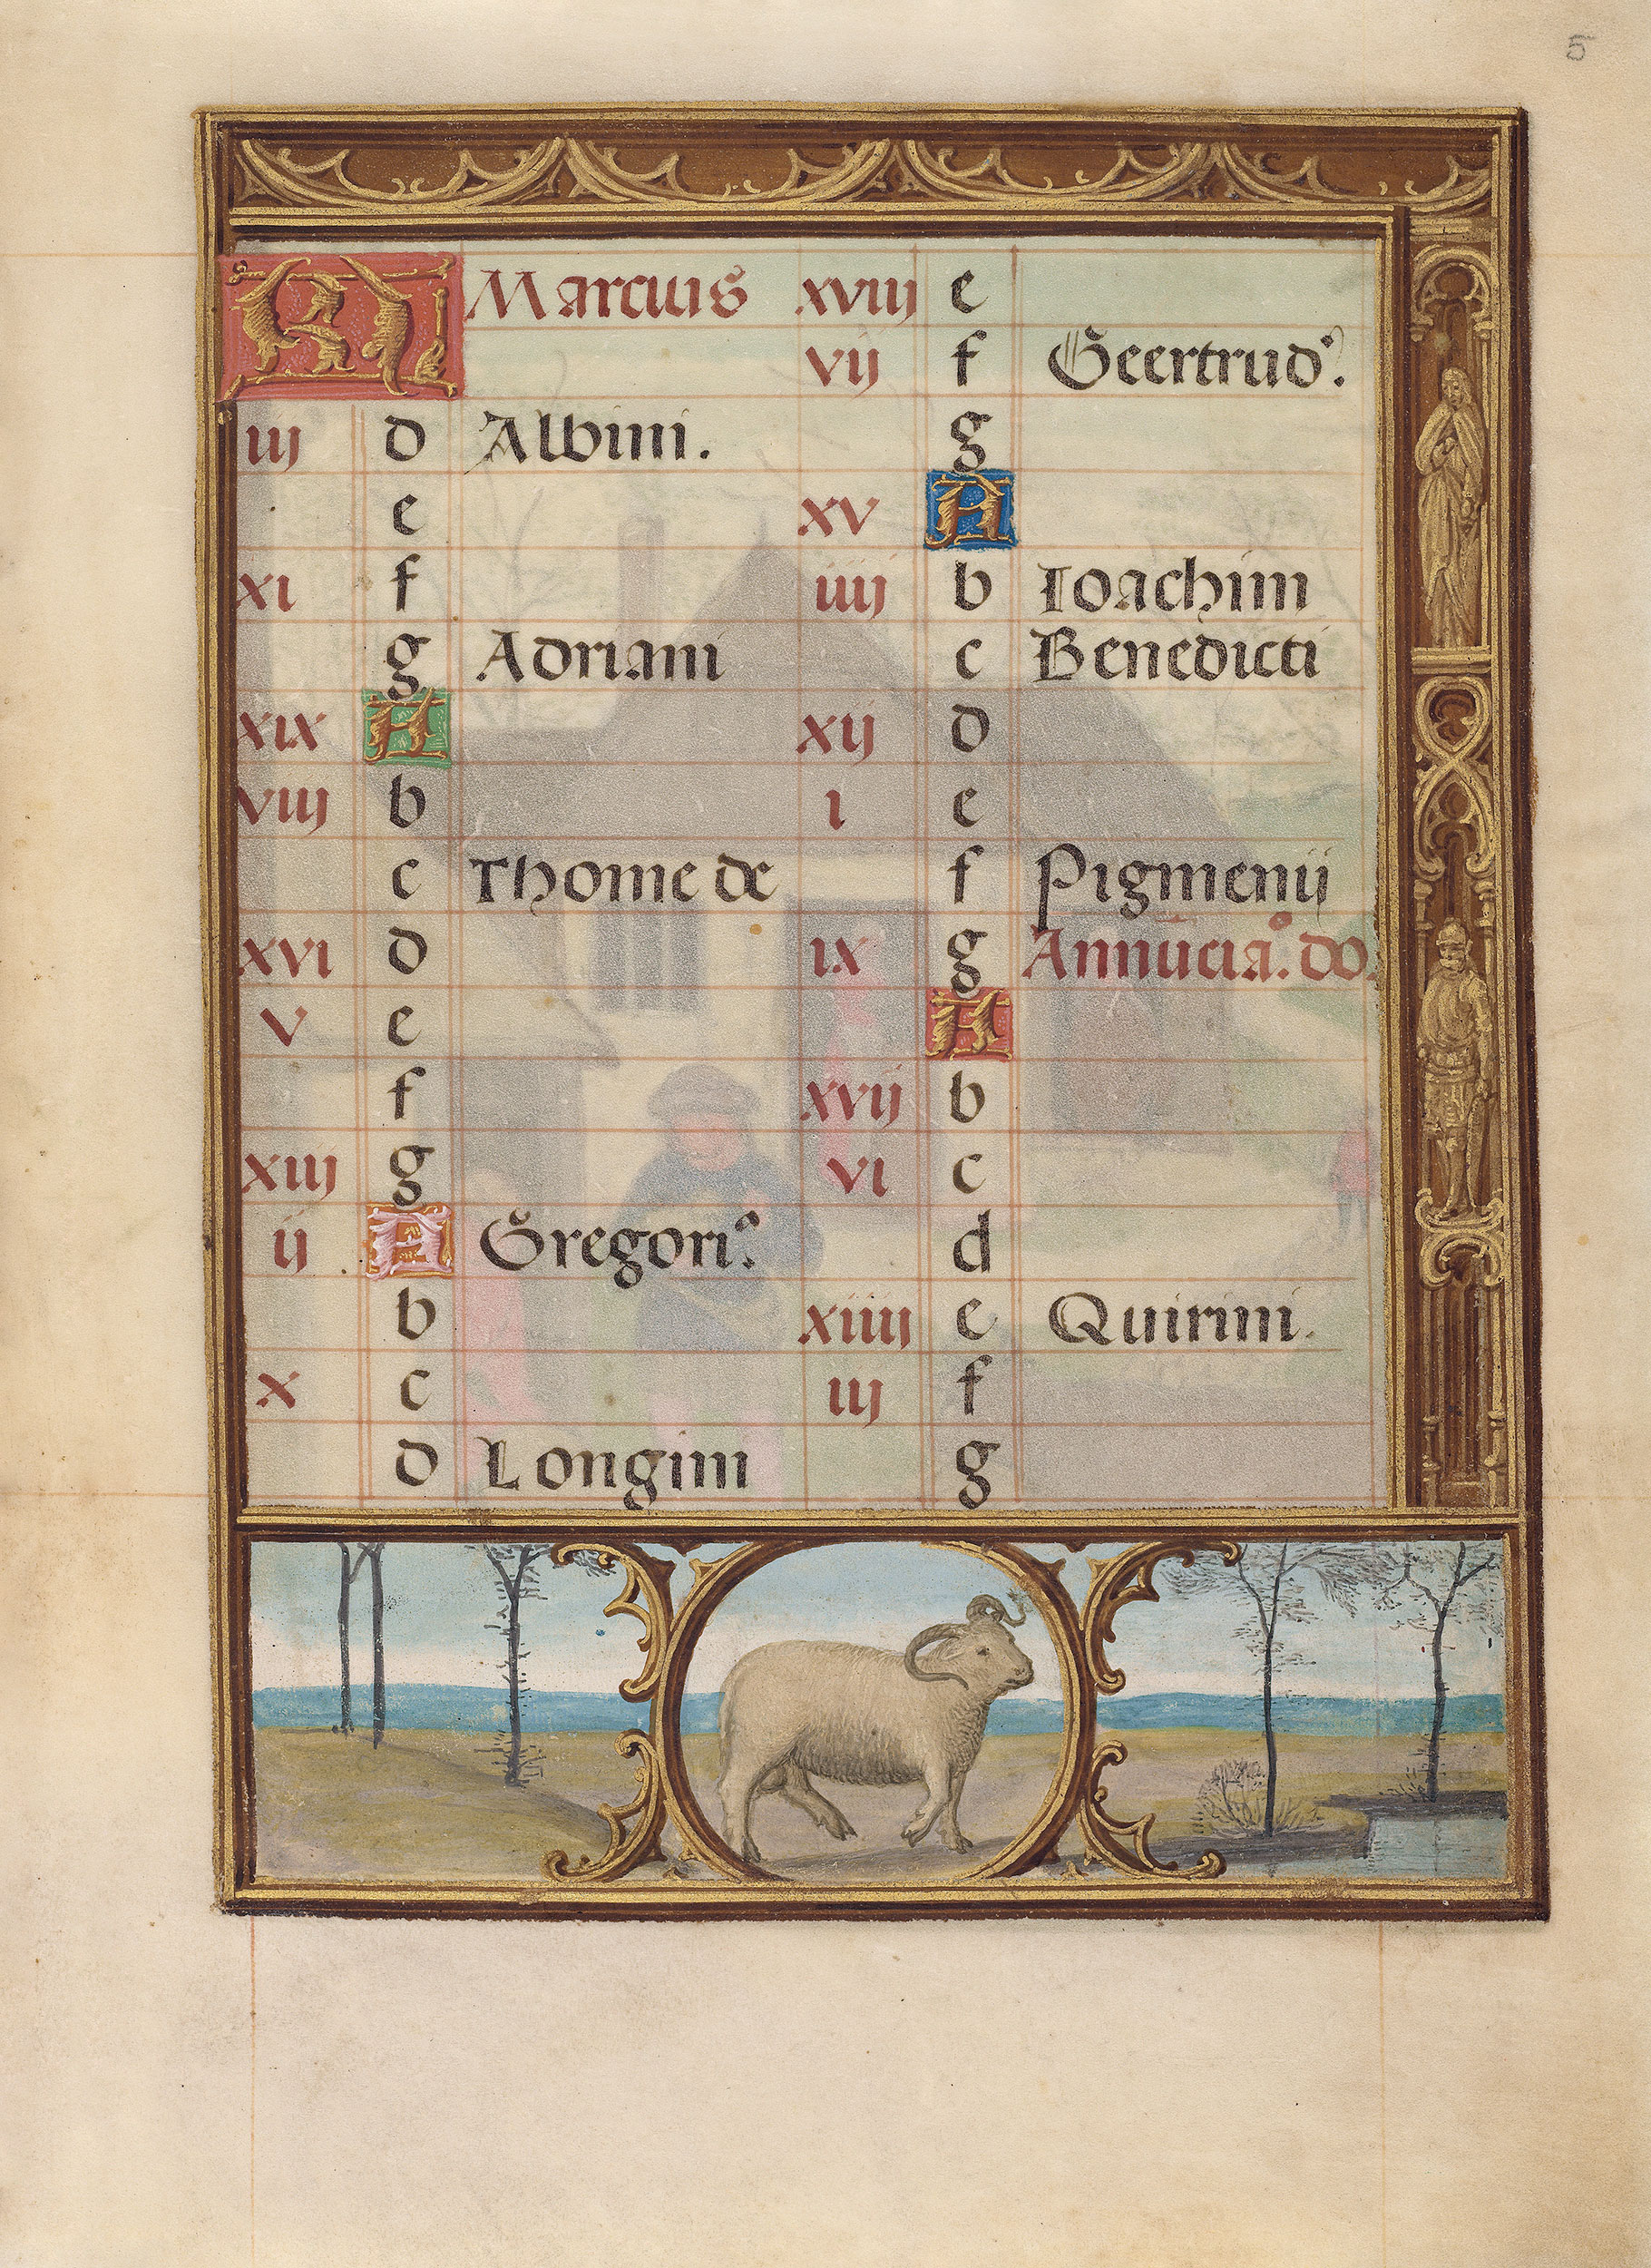 5
Kl Marcius
iij d Albini.
e
xi f
g Adriani
xix A
viij b
c Thome de
xvi d
v e
f
xiij g
ij A Gregori⁹.
b
x c
d Longini
xviij e
vij f Geertrud⁹.
g
xv A
iiij b Ioachim
c Benedicti
xij d
i e
f Pigmenij
ix g Annūcia⁹. do.
A
xvij b
vi c
d
xiiij e Quirini.
iij f
g